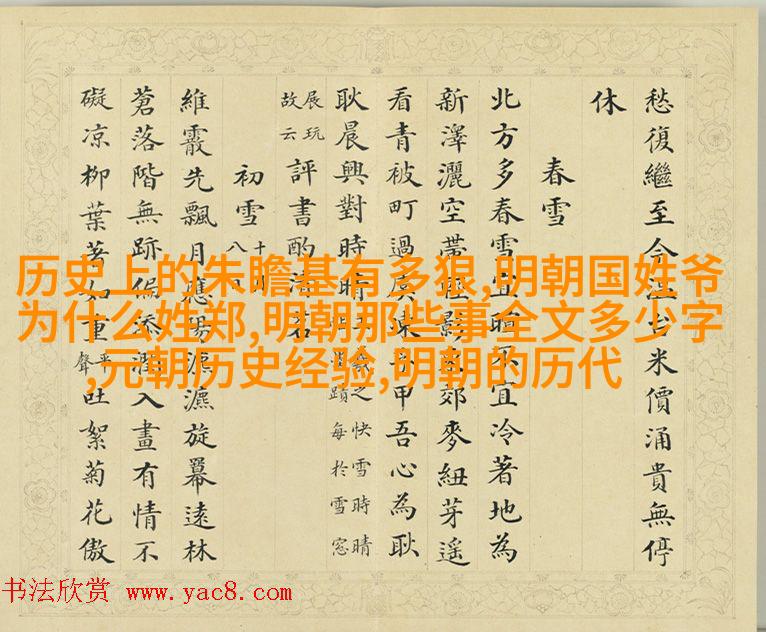 愁復繼至今米價涌貴無停
休
春雪
北方多春雪宜宜冷著地為
新澤灑空帶郊麥紐芽遥
看青被町過甲吾心為耿
耿晨興對時之快雪時晴
蹟每於雪窓
展玩
故云
評書酌清
初雪
十
八
維霰先飄月應瀌瀌旋羃遠林
蒼落階無跡偏添潤入畫有情不
礙凉柳葉著如重平
聲吐絮菊花傲
历史上的朱瞻基有多狠,明朝国姓爷
为什么姓郑,明朝那些事全文多少字
,元朝历史经验,明朝的历代
书法欣赏 www.yac8.com